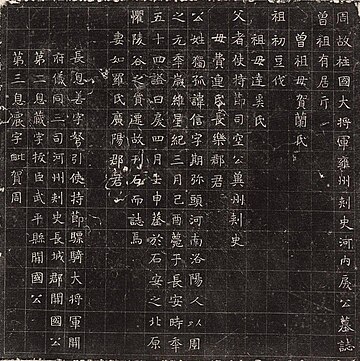 周故柱國大將軍雍州刺史河內戾公墓誌
曾祖有居斤
曾祖母賀蘭氏
祖初豆伐
祖母達奚氏
父者使持節司空公冀州刺史
母費連氏長樂郡君
公姓獨孤諱信字期彌頭河南洛陽人以周
之元年歲維星紀三月己酉薨于長安時年
五十四謚曰戾四月壬申葬於石安之北原
懼陵谷之貿遷故刊石而誌焉
妻如羅氏廣陽郡君
長息善字弩引使持節驃騎大將軍開
府儀同三司河州刺史長城郡開國公
第二息藏字拔臣武平縣開國公
第三息震字毗賀周